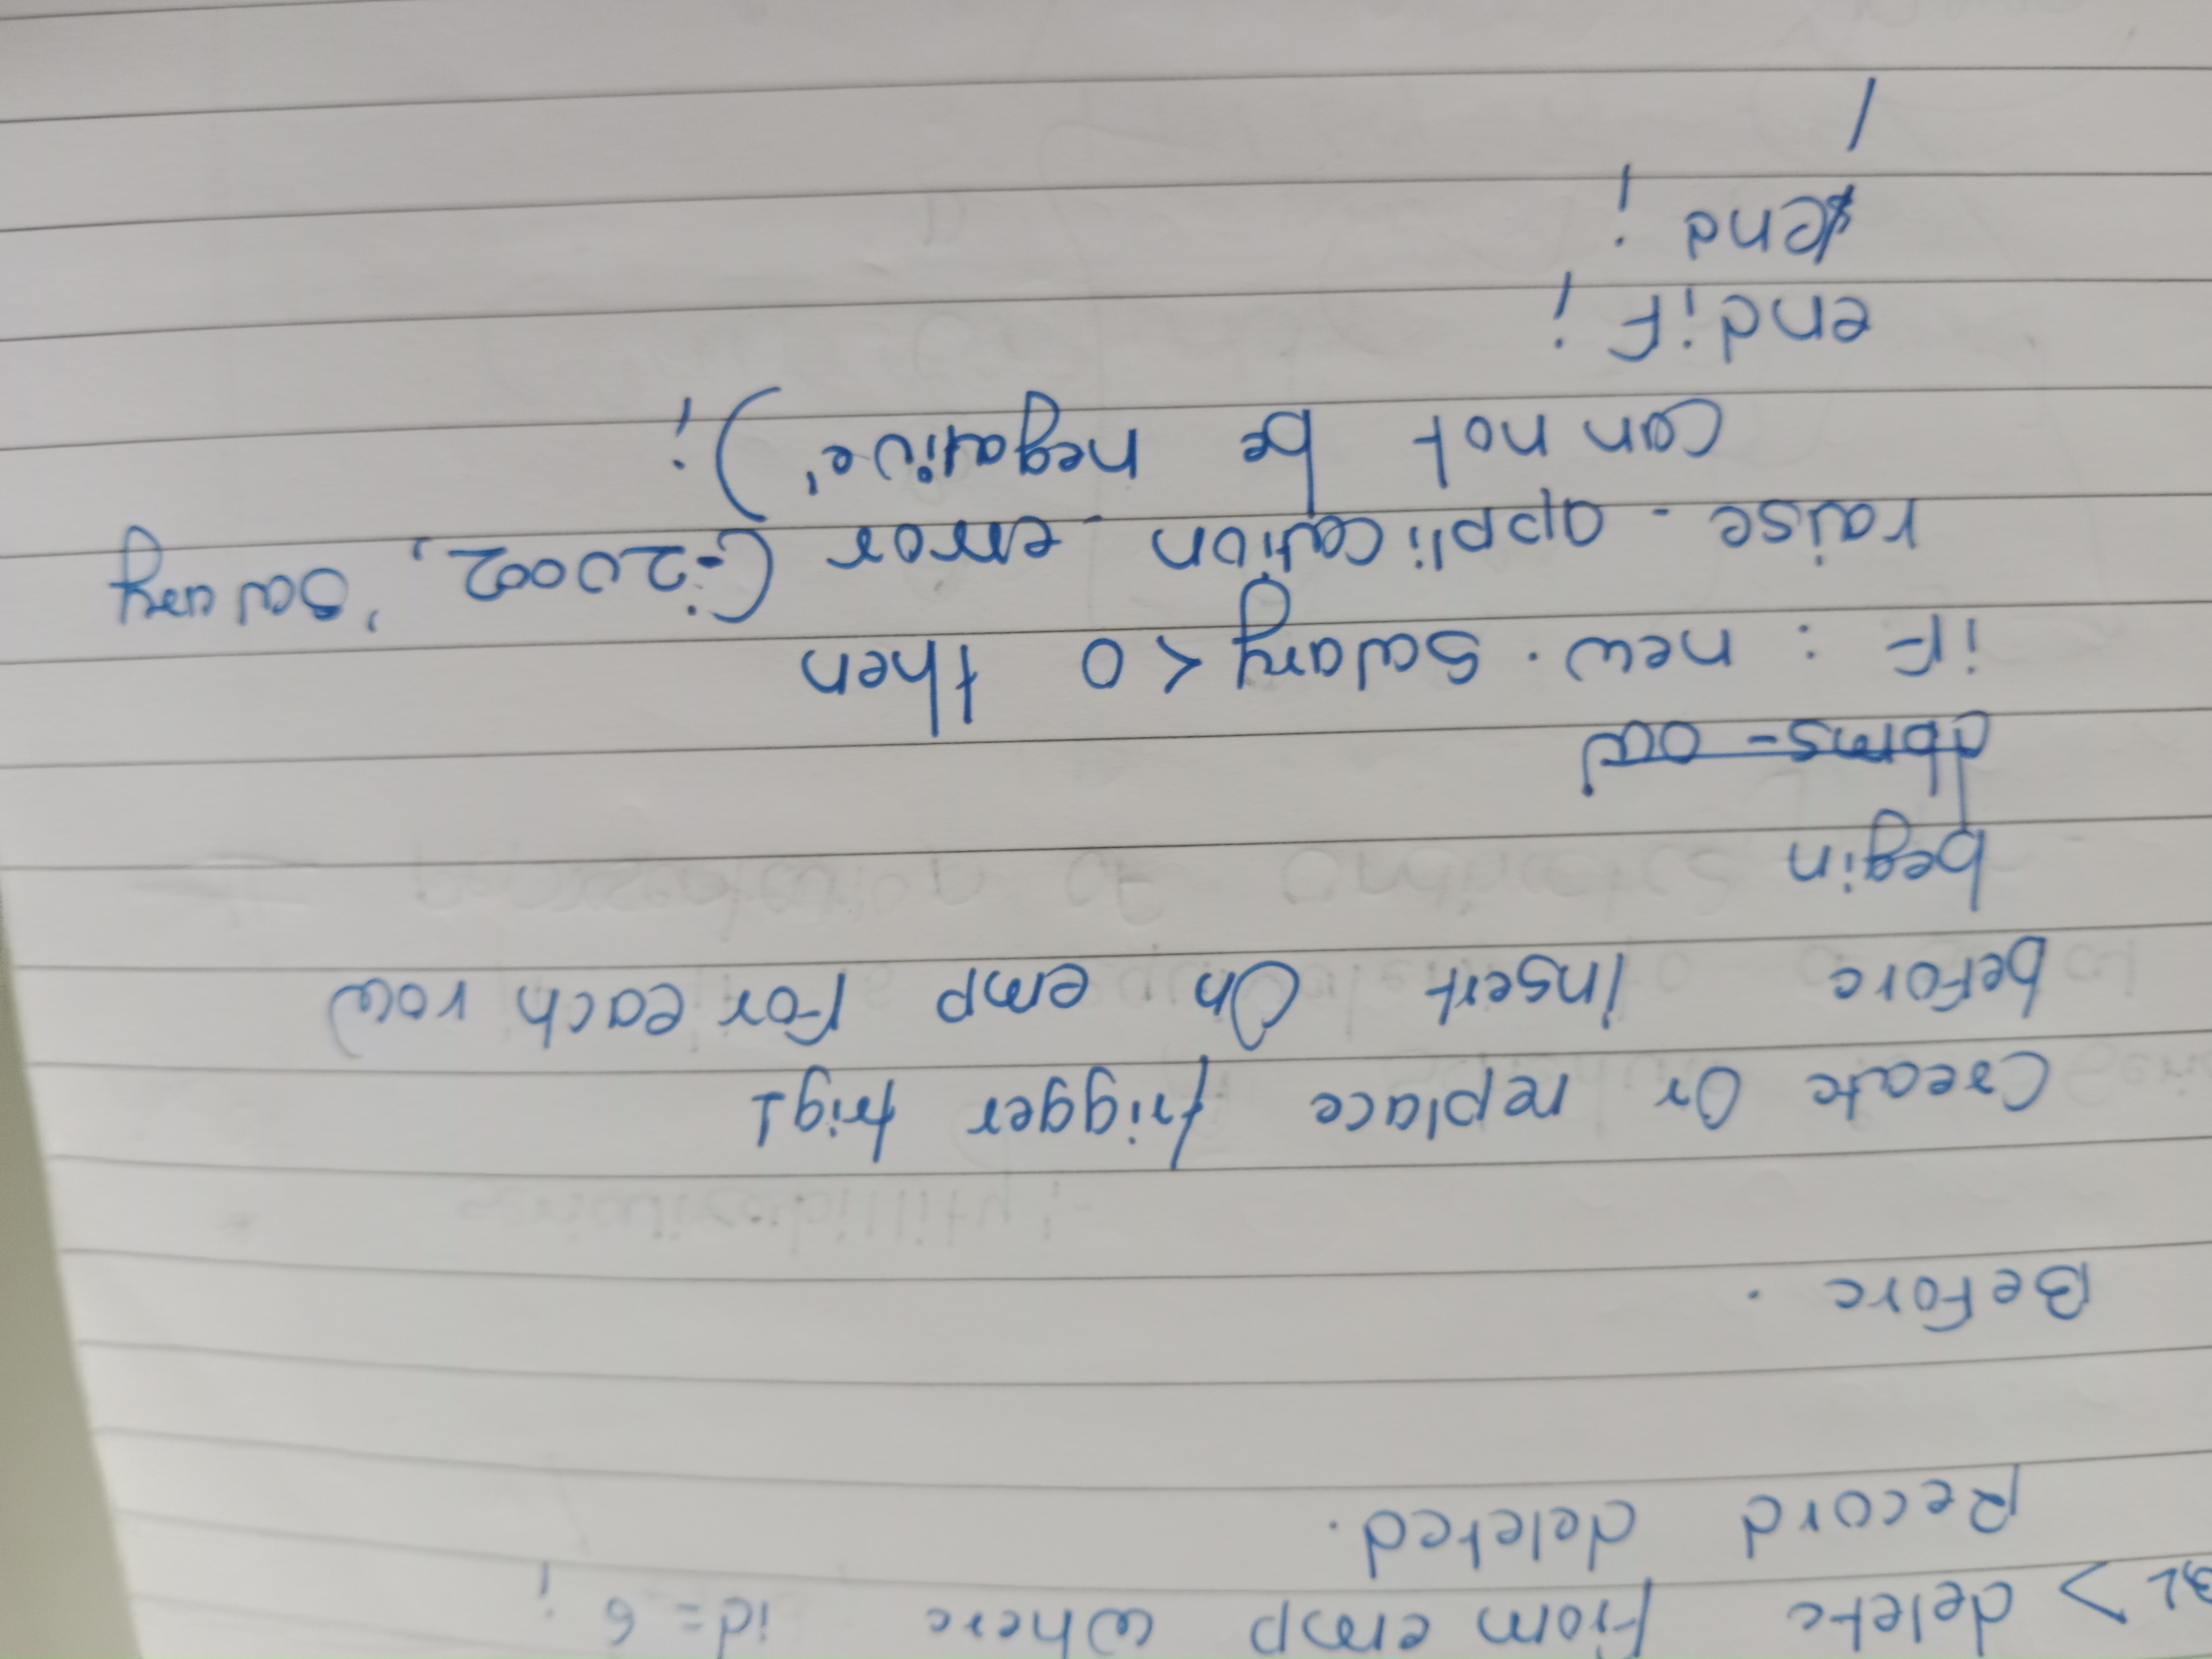 > delete from emp where id = 6 ;
Record deleted.
Before .
Create Or replace trigger trig1
before insert On emp for each row
begin
if : new . salary < 0 then
raise - application - error (-20002, 'salary
can not be negative' ) ;
endif ;
end ;
/